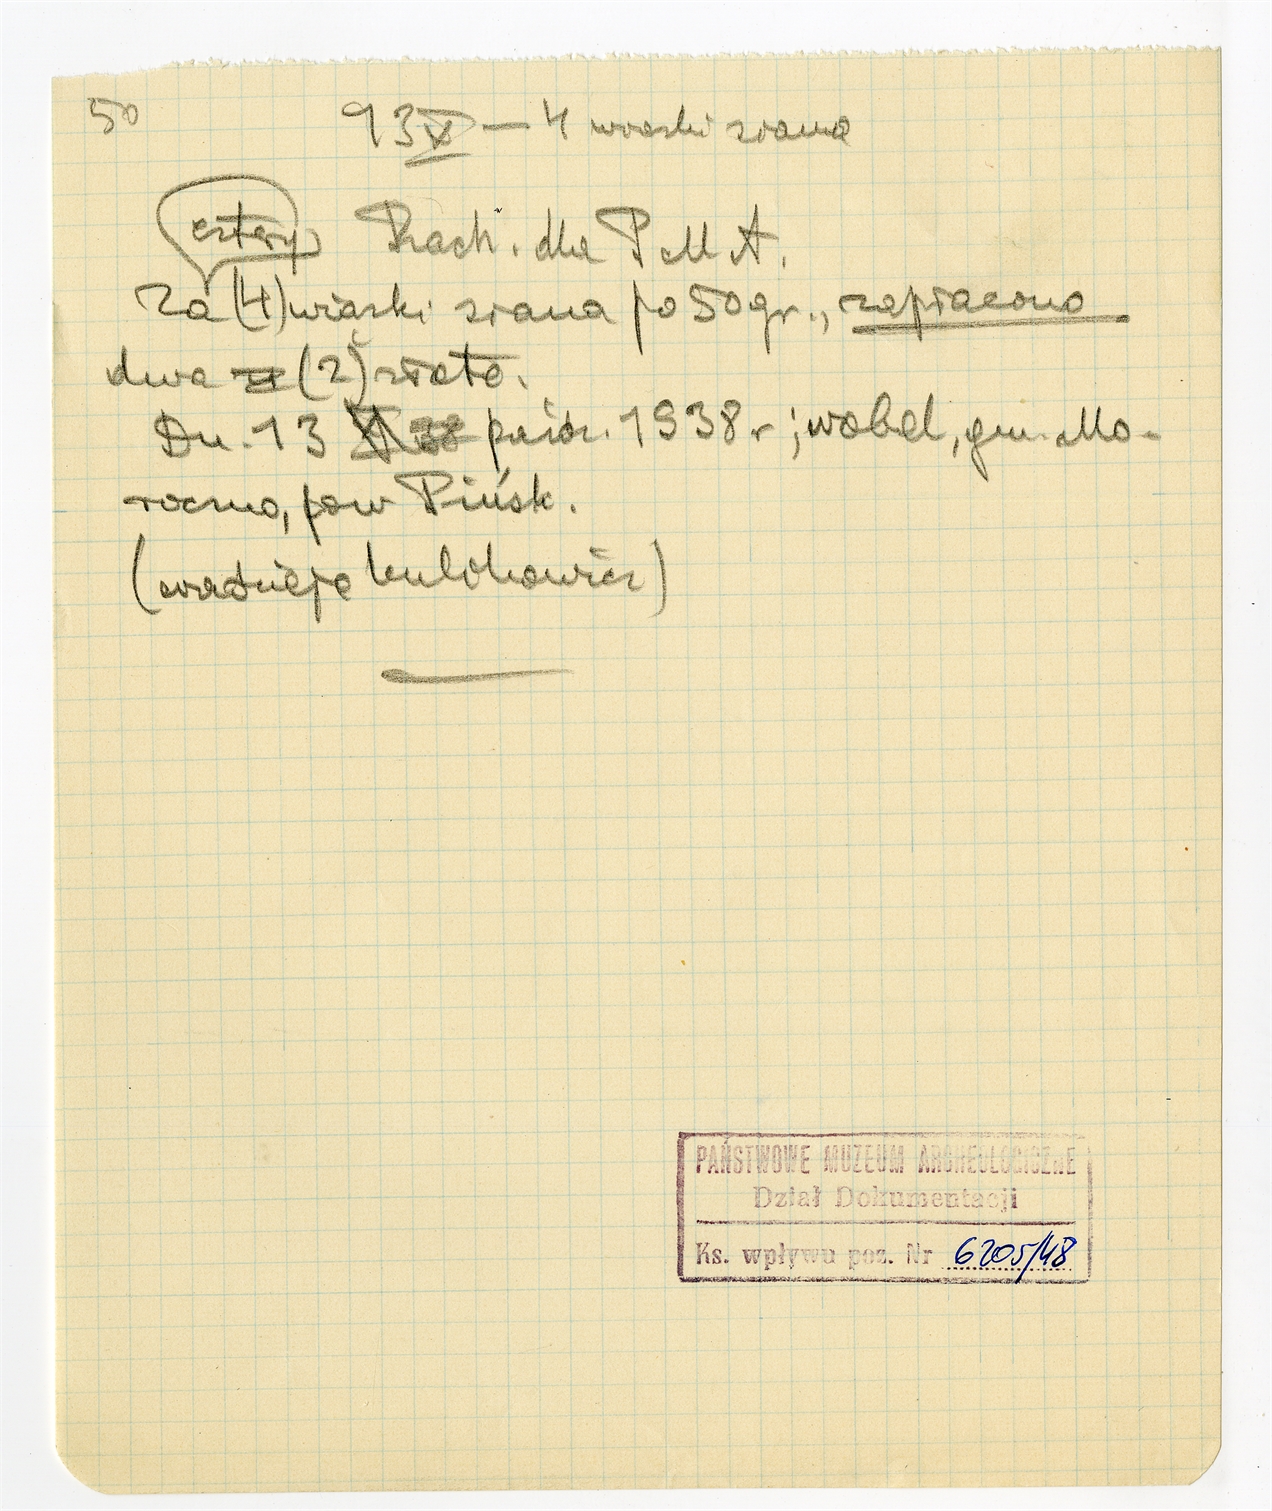 50
13 X — 4 wiązki siana
cztery Rach. dla P.M.A.
Za (4) wiązki siana po 50 gr., zapłacono
dwa zł (2) złote.
Dn. 13 X 38 paźdz. 1938 r; Wobel, gm. Mo-
roczno, pow Pińsk.
PAŃSTWOWE MUZEUM ARCHEOLOGICZNE
Dział Dokumentacji
Ks. wpływu poz. Nr 6205/48